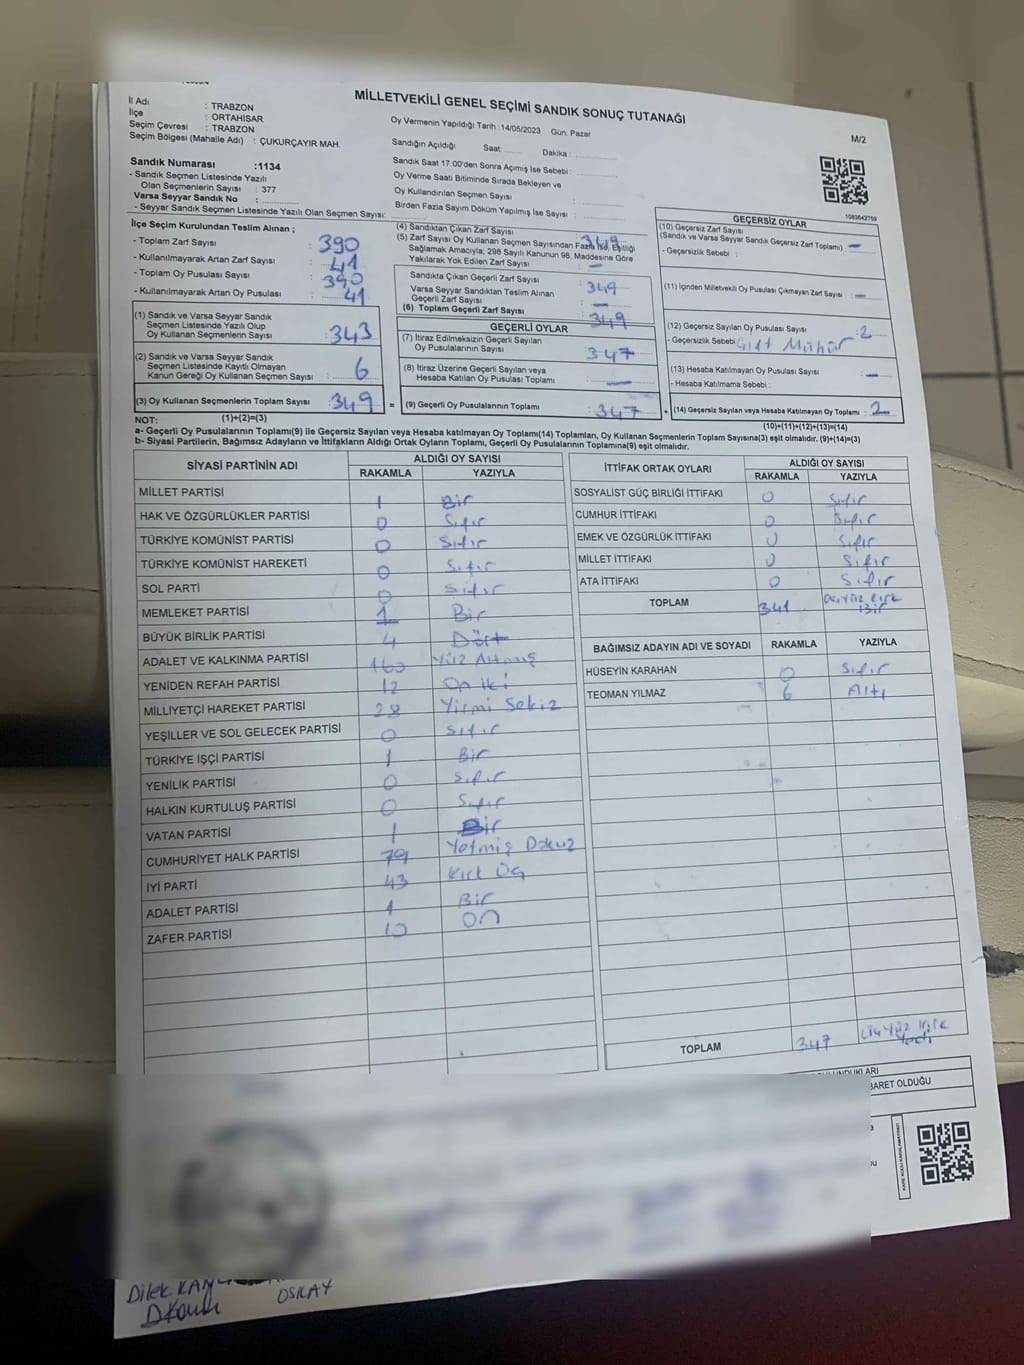 MİLLETVEKİLİ GENEL SEÇİMİ SANDIK SONUÇ TUTANAĞI
M/2
İl Adı : TRABZON
İlçe : ORTAHİSAR
Seçim Çevresi : TRABZON
Seçim Bölgesi (Mahalle Adı) : ÇUKURÇAYIR MAH.
Oy Vermenin Yapıldığı Tarih :14/05/2023 Gün: Pazar
Sandığın Açıldığı Saat: ...... Dakika : ......
Sandık Saat 17:00'den Sonra Açımış İse Sebebi :
Oy Verme Saati Bitiminde Sırada Bekleyen ve
Oy Kullandırılan Seçmen Sayısı :
Birden Fazla Sayım Döküm Yapılmış İse Sayısı :
Sandık Numarası :1134
- Sandık Seçmen Listesinde Yazılı
Olan Seçmenlerin Sayısı : 377
Varsa Seyyar Sandık No :
- Seyyar Sandık Seçmen Listesinde Yazılı Olan Seçmen Sayısı:
1083642759
İlçe Seçim Kurulundan Teslim Alınan ;
- Toplam Zarf Sayısı : 390
- Kullanılmayarak Artan Zarf Sayısı : 41
- Toplam Oy Pusulası Sayısı : 390
- Kullanılmayarak Artan Oy Pusulası : 41
(1) Sandık ve Varsa Seyyar Sandık
Seçmen Listesinde Yazılı Olup
Oy Kullanan Seçmenlerin Sayısı : 343
(2) Sandık ve Varsa Seyyar Sandık
Seçmen Listesinde Kayıtlı Olmayan
Kanun Gereği Oy Kullanan Seçmen Sayısı : 6
(3) Oy Kullanan Seçmenlerin Toplam Sayısı : 349
(1)+(2)=(3)
(4) Sandıktan Çıkan Zarf Sayısı : 349
(5) Zarf Sayısı Oy Kullanan Seçmen Sayısından Fazla İse, Eşitliği
Sağlamak Amacıyla; 298 Sayılı Kanunun 98. Maddesine Göre
Yakılarak Yok Edilen Zarf Sayısı : —
Sandıkta Çıkan Geçerli Zarf Sayısı : 349
Varsa Seyyar Sandıktan Teslim Alınan
Geçerli Zarf Sayısı : —
(6) Toplam Geçerli Zarf Sayısı : 349
GEÇERLİ OYLAR
(7) İtiraz Edilmeksizin Geçerli Sayılan
Oy Pusulalarının Sayısı : 347
(8) İtiraz Üzerine Geçerli Sayılan veya
Hesaba Katılan Oy Pusulası Toplamı : —
= (9) Geçerli Oy Pusulalarının Toplamı : 347
GEÇERSİZ OYLAR
(10) Geçersiz Zarf Sayısı
(Sandık ve Varsa Seyyar Sandık Geçersiz Zarf Toplamı) : —
- Geçersizlik Sebebi :
(11) İçinden Milletvekili Oy Pusulası Çıkmayan Zarf Sayısı : —
(12) Geçersiz Sayılan Oy Pusulası Sayısı : 2
- Geçersizlik Sebebi: Çift Mühür
(13) Hesaba Katılmayan Oy Pusulası Sayısı : —
- Hesaba Katılmama Sebebi :
+ (14) Geçersiz Sayılan veya Hesaba Katılmayan Oy Toplamı : 2
(10)+(11)+(12)+(13)=(14)
NOT:
a- Geçerli Oy Pusulasının Toplamı(9) ile Geçersiz Sayılan veya Hesaba katılmayan Oy Toplamı(14) Toplamları, Oy Kullanan Seçmenlerin Toplam Sayısına(3) eşit olmalıdır. (9)+(14)=(3)
b- Siyasi Partilerin, Bağımsız Adayların ve İttifakların Aldığı Ortak Oyların Toplamı, Geçerli Oy Pusulalarının Toplamına(9) eşit olmalıdır.
SİYASİ PARTİNİN ADI ALDIĞI OY SAYISI
RAKAMLA YAZIYLA
MİLLET PARTİSİ 1 Bir
HAK VE ÖZGÜRLÜKLER PARTİSİ 0 Sıfır
TÜRKİYE KOMÜNİST PARTİSİ 0 Sıfır
TÜRKİYE KOMÜNİST HAREKETİ 0 Sıfır
SOL PARTİ 0 Sıfır
MEMLEKET PARTİSİ 1 Bir
BÜYÜK BİRLİK PARTİSİ 4 Dört
ADALET VE KALKINMA PARTİSİ 160 Yüz Altmış
YENİDEN REFAH PARTİSİ 12 On iki
MİLLİYETÇİ HAREKET PARTİSİ 28 Yirmi Sekiz
YEŞİLLER VE SOL GELECEK PARTİSİ 0 Sıfır
TÜRKİYE İŞÇİ PARTİSİ 1 Bir
YENİLİK PARTİSİ 0 Sıfır
HALKIN KURTULUŞ PARTİSİ 0 Sıfır
VATAN PARTİSİ 1 Bir
CUMHURİYET HALK PARTİSİ 79 Yetmiş Dokuz
İYİ PARTİ 43 Kırk Üç
ADALET PARTİSİ 1 Bir
ZAFER PARTİSİ 10 On
İTTİFAK ORTAK OYLARI ALDIĞI OY SAYISI
RAKAMLA YAZIYLA
SOSYALİST GÜÇ BİRLİĞİ İTTİFAKI 0 Sıfır
CUMHUR İTTİFAKI 0 Sıfır
EMEK VE ÖZGÜRLÜK İTTİFAKI 0 Sıfır
MİLLET İTTİFAKI 0 Sıfır
ATA İTTİFAKI 0 Sıfır
TOPLAM 341 Üçyüz Kırk Bir
BAĞIMSIZ ADAYIN ADI VE SOYADI RAKAMLA YAZIYLA
HÜSEYİN KARAHAN 0 Sıfır
TEOMAN YILMAZ 6 Altı
TOPLAM 347 Üçyüz Kırk Yedi
BARET OLDUĞU
Dilek
OSKAY